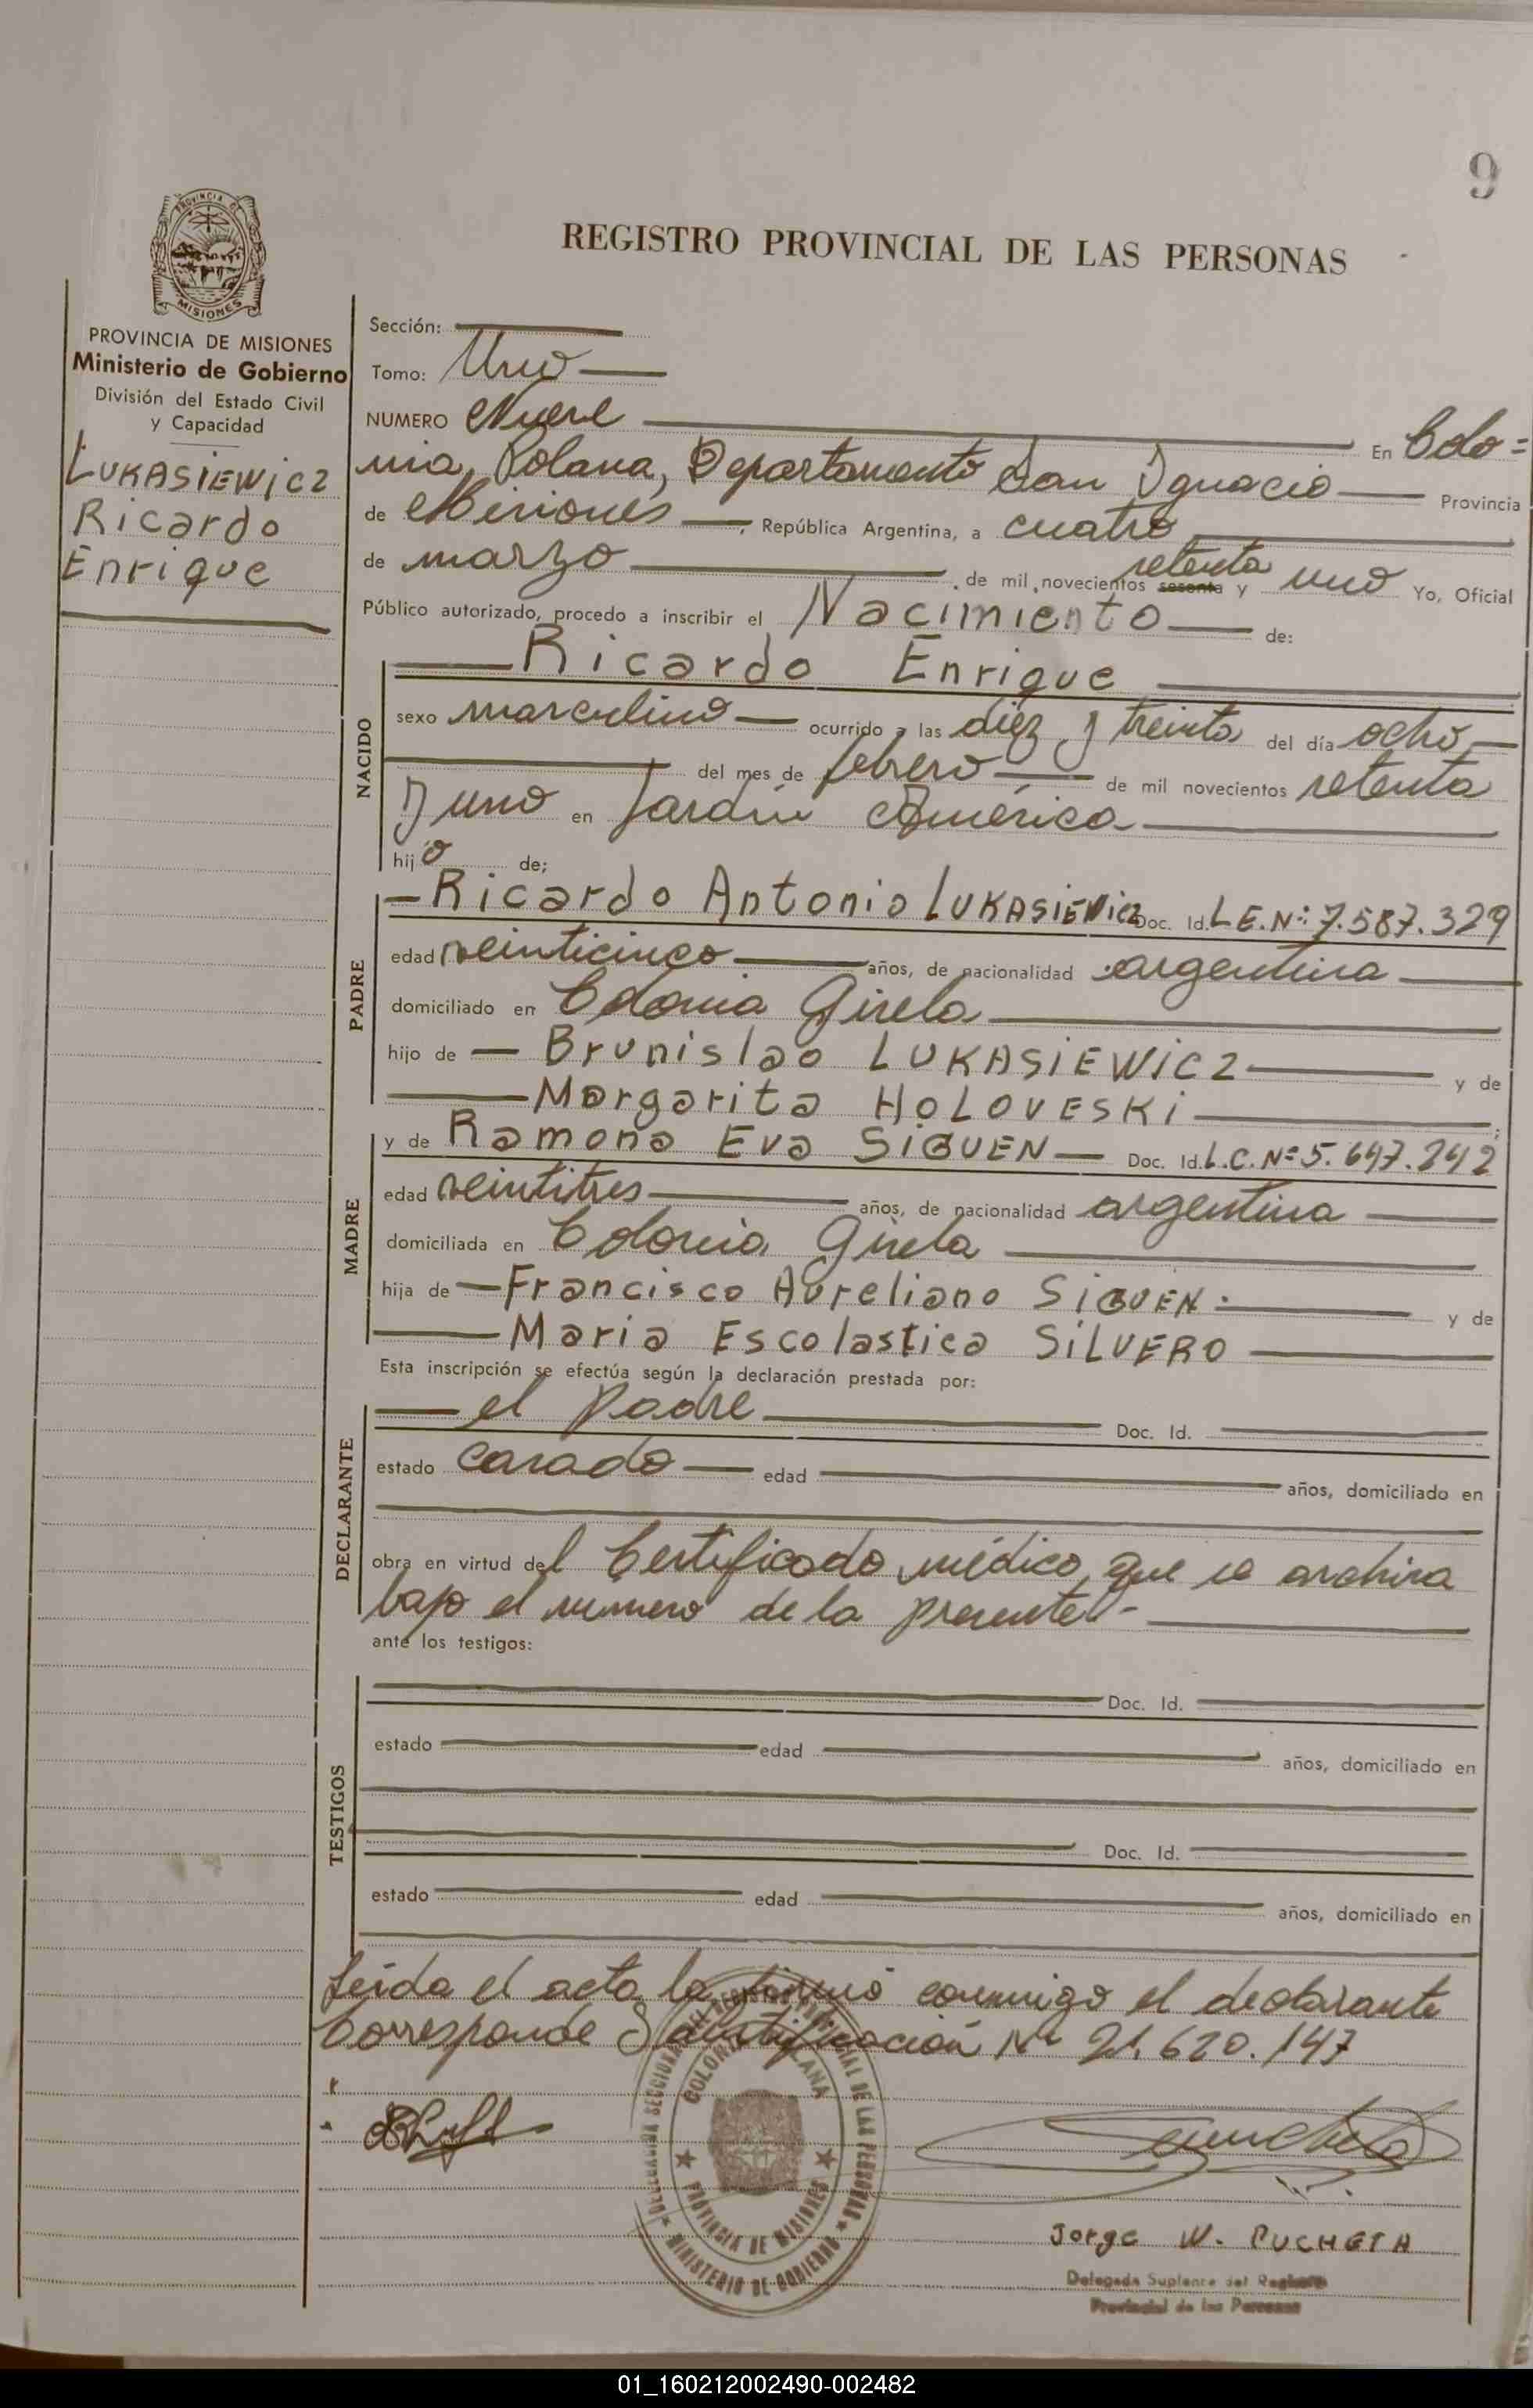 9
REGISTRO PROVINCIAL DE LAS PERSONAS
PROVINCIA DE
MISIONES
PROVINCIA DE MISIONES
Ministerio de Gobierno
División del Estado Civil
y Capacidad
LUKASIEWICZ
Ricardo
Enrique
Sección:
Tomo: Uno
NUMERO Nueve En Colo=
nia Polana, Departamento San Ignacio Provincia
de Misiones, República Argentina, a cuatro
de marzo de mil novecientos sesenta setenta y uno Yo, Oficial
Público autorizado, procedo a inscribir el Nacimiento de:
NACIDO
Ricardo Enrique
sexo masculino ocurrido a las diez y treinta del día ocho
del mes de febrero de mil novecientos setenta
y uno en Jardín América
hijo de;
PADRE
Ricardo Antonio LUKASIEWicz Doc. Id. L.E. Nº: 7.587.329
edad veinticinco años, de nacionalidad argentina
domiciliado en Colonia Gisela
hijo de Brunislao LUKASIEWICZ y de
Margarita HOLOVESKI
MADRE
y de Ramona Eva Doc. Id. L.C. Nº 5.647.242
edad veintitres años, de nacionalidad argentina
domiciliada en Colonia Gisela
hija de Francisco Aureliano y de
Maria Escolastica SILVERO
Esta inscripción se efectúa según la declaración prestada por:
DECLARANTE
el padre Doc. Id.
estado casado edad años, domiciliado en
obra en virtud del Certificado médico que se archiva
bajo el número de la presente.-
ante los testigos:
TESTIGOS
Doc. Id.
estado edad años, domiciliado en
Doc. Id.
estado edad años, domiciliado en
Leída el acta la firmó conmigo el declarante
Corresponde Identificación Nº 21.620.147
COLONIA POLANA
PROVINCIA DE MISIONES
MINISTERIO DE GOBIERNO
Jorge W. PUCHETA
Delegado Suplente del Registro
Provincial de las Personas
01_160212002490-002482